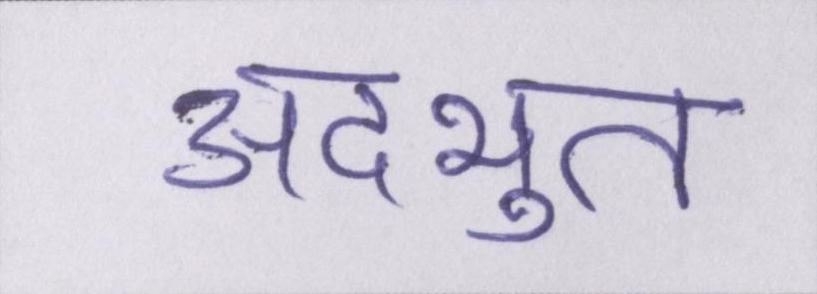 अदभुत